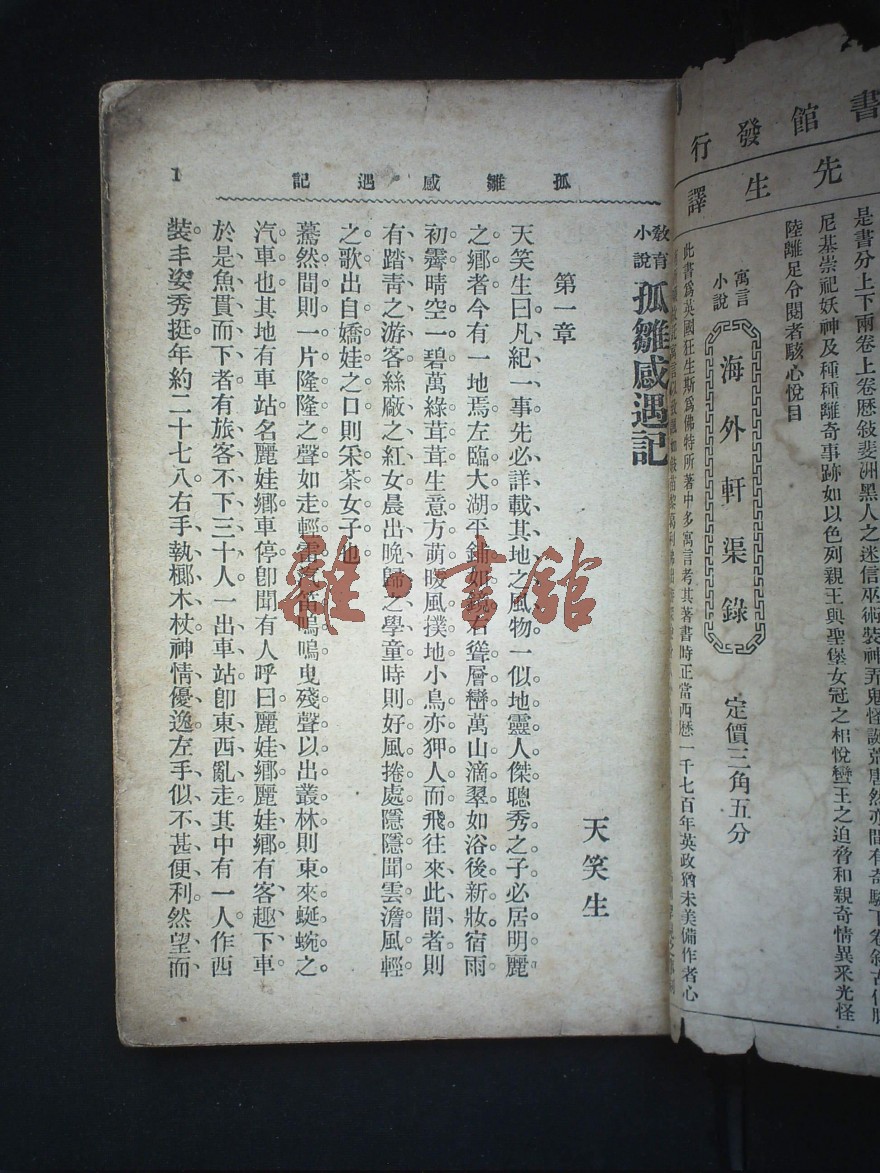 書館發行
先生譯
是書分上下兩卷上卷歷敍斐洲黑人之迷信巫術裝神弄鬼怪誕荒唐然亦間有奇驗下卷敍古
尼基崇祀妖神及種種離奇事跡如以色列親王與聖堡女冠之相悅蠻王之迫脅和親奇情異采光怪
陸離足令閱者駭心悅目
寓言小說
海外軒渠錄
定價三角五分
此書爲英國狂生斯爲佛特所著中多寓言考其著書時正當西歷一千七百年英政猶未美備作者心
孤雛感遇記
1
教育小說
孤雛感遇記
天笑生
第一章
天笑生曰凡紀一事先必詳載其地之風物一似地靈人傑聰秀之子必居明麗
之鄉者今有一地焉左臨大湖平鋪如鏡右聳層巒萬山滴翠如浴後新妝宿雨
初霽晴空一碧萬綠茸茸生意方萌暖風撲地小鳥亦狎人而飛往來此間者則
有踏靑之游客絲廠之紅女晨出晚歸之學童時則好風捲處隱隱聞雲澹風輕
之歌出自嬌娃之口則采茶女子也
驀然間則一片隆隆之聲如走輕雷汽笛嗚嗚曳殘聲以出叢林則東來蜒蜿之
汽車也其地有車站名麗娃鄉車停卽聞有人呼曰麗娃鄉麗娃鄉有客趣下車
於是魚貫而下者有旅客不下三十人一出車站卽東西亂走其中有一人作西
裝丰姿秀挺年約二十七八右手執榔木杖神情優逸左手似不甚便利然望而
雜·書館